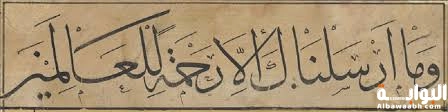 وما أرسلناك إلا رحمة للعالمين
البوابة
Albawaabh.com